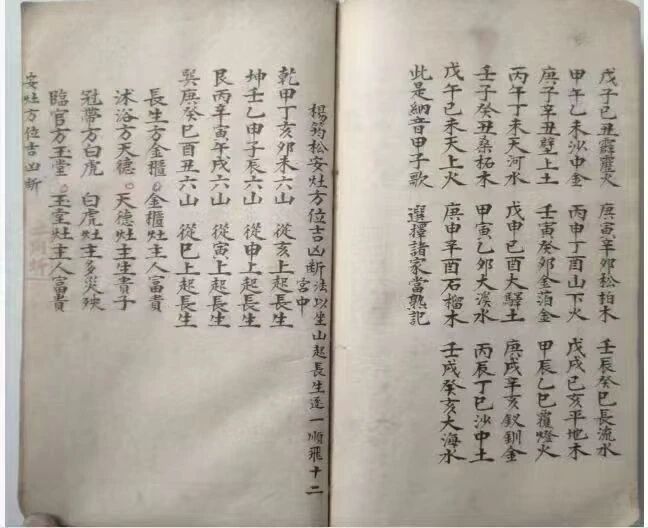 戊子己丑霹靂火 庚寅辛卯松柏木 壬辰癸巳長流水
甲午乙未沙中金 丙申丁酉山下火 戊戌己亥平地木
庚子辛丑壁上土 壬寅癸卯金箔金 甲辰乙巳覆燈火
丙午丁未天河水 戊申己酉大驛土 庚戌辛亥釵釧金
壬子癸丑桑柘木 甲寅乙卯大溪水 丙辰丁巳沙中土
戊午己未天上火 庚申辛酉石榴木 壬戌癸亥大海水
此是納音甲子歌 選擇諸家當熟記
楊筠松安灶方位吉凶断法以坐山起長生逐一順飛十二
宮中
乾甲丁亥卯未六山 從亥上起長生
坤壬乙申子辰六山 從申上起長生
艮丙辛寅午戌六山 從寅上起長生
巽庚癸巳酉丑六山 從巳上起長生
長生方金櫃。金櫃灶主人富貴
沐浴方天德。天德灶主生貴子
冠帶方白虎 白虎灶主多災殃
臨官方玉堂。玉堂灶主人富貴
安灶方位吉凶断